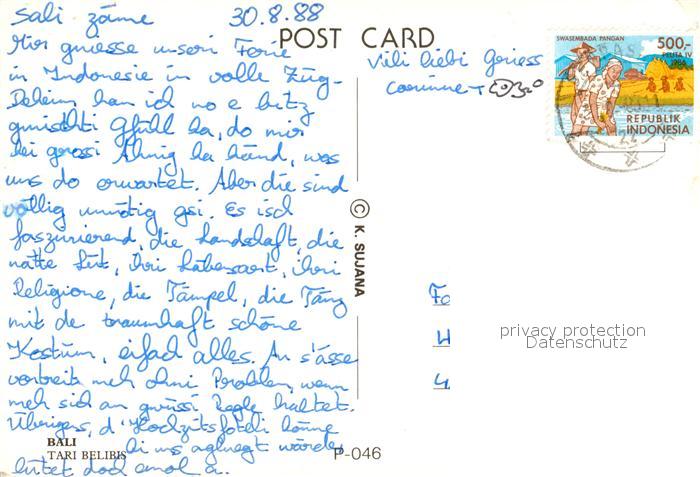 Sali zäme 30.8.88
Mir gniesse unseri Ferie
in Indonesie in volle Züg.
Deheim han id no e bitz
gmischti Gfüll ka, do mir
kei grossi Ahnig ka händ, was
uns do erwartet. Aber die sind
völlig unnötig gsi. Es isch
faszinierend, die Landschaft, die
nätte Lüt, ihri Läbesart, ihri
Religione, die Tämpel, die Tänz
mit de traumhaft schöne
Kostüm, eifach alles. Au s'ässe
vertreit meh ohni Problem, wenn
meh sich an gwüssi Regle haltet.
Übrigens, d'Hochzitsföteli könne
bi uns aglueget wärde,
lütet doch emol a.
POST CARD
Vili liebi Grüess
Corinne +
SWASEMBADA PANGAN
500,-
PELITA IV
1986
REPUBLIK
INDONESIA
© K. SUJANA
Fo
H
4
privacy protection
Datenschutz
BALI
TARI BELIBIS
P-046